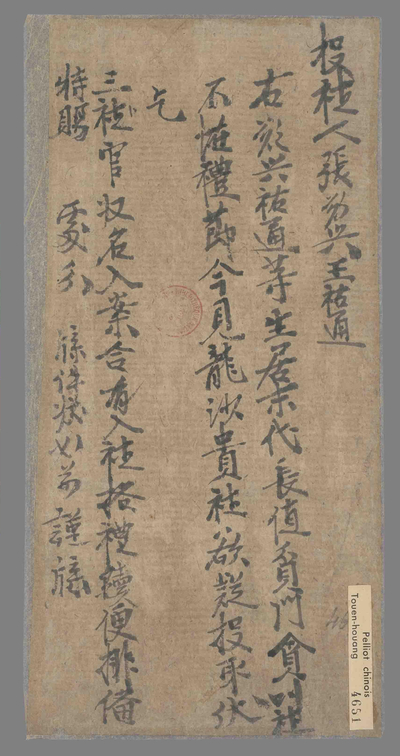 投社人張願兴王祐通
右願兴祐通等生居末代長值貧門貪社
不禮節今見龍沙貴社欲擬投取伏
乞
三社官收名入案合有入社格禮續便排備
特賜 處分 牒件狀如前謹牒
Pelliot chinois
Touen-houang 4651